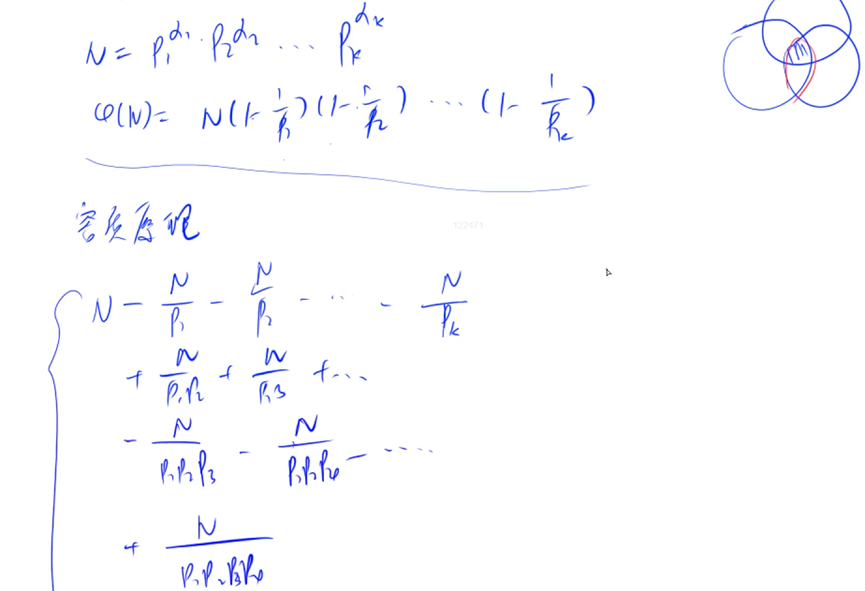 N = P₁^α₁ · P₂^α₂ ... Pₖ^αₖ
φ(N) = N(1 - 1/P₁)(1 - 1/P₂) ... (1 - 1/Pₖ)
容斥原理
122471
N - N/P₁ - N/P₂ - ... - N/Pₖ
+ N/P₁P₂ + N/P₁P₃ + ...
- N/P₁P₂P₃ - N/P₁P₂P₄ - ....
+ N/P₁P₂P₃P₄